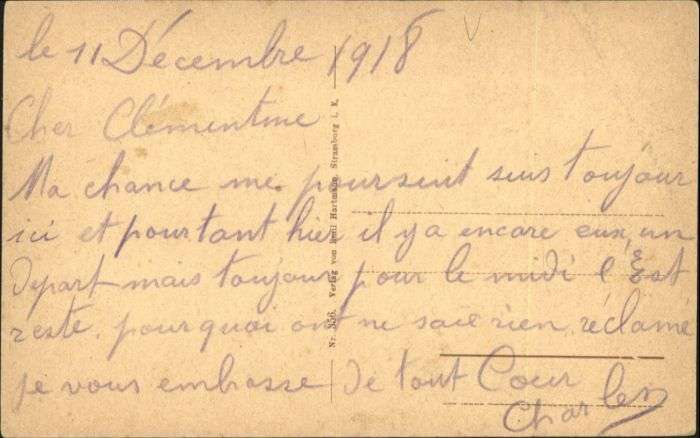 le 11 Décembre 1918
Cher Clémentine
Ma chance me poursuit suis toujour
ici et pourtant hier il y a encore eux un
Depart mais toujour pour le midi l'Est
reste. pourquoi ont ne sait rien, réclame
je vous embrasse de tout Coeur
Charles
Nr. 356. Verlag von Emil Hartmann, Strassburg i. E.